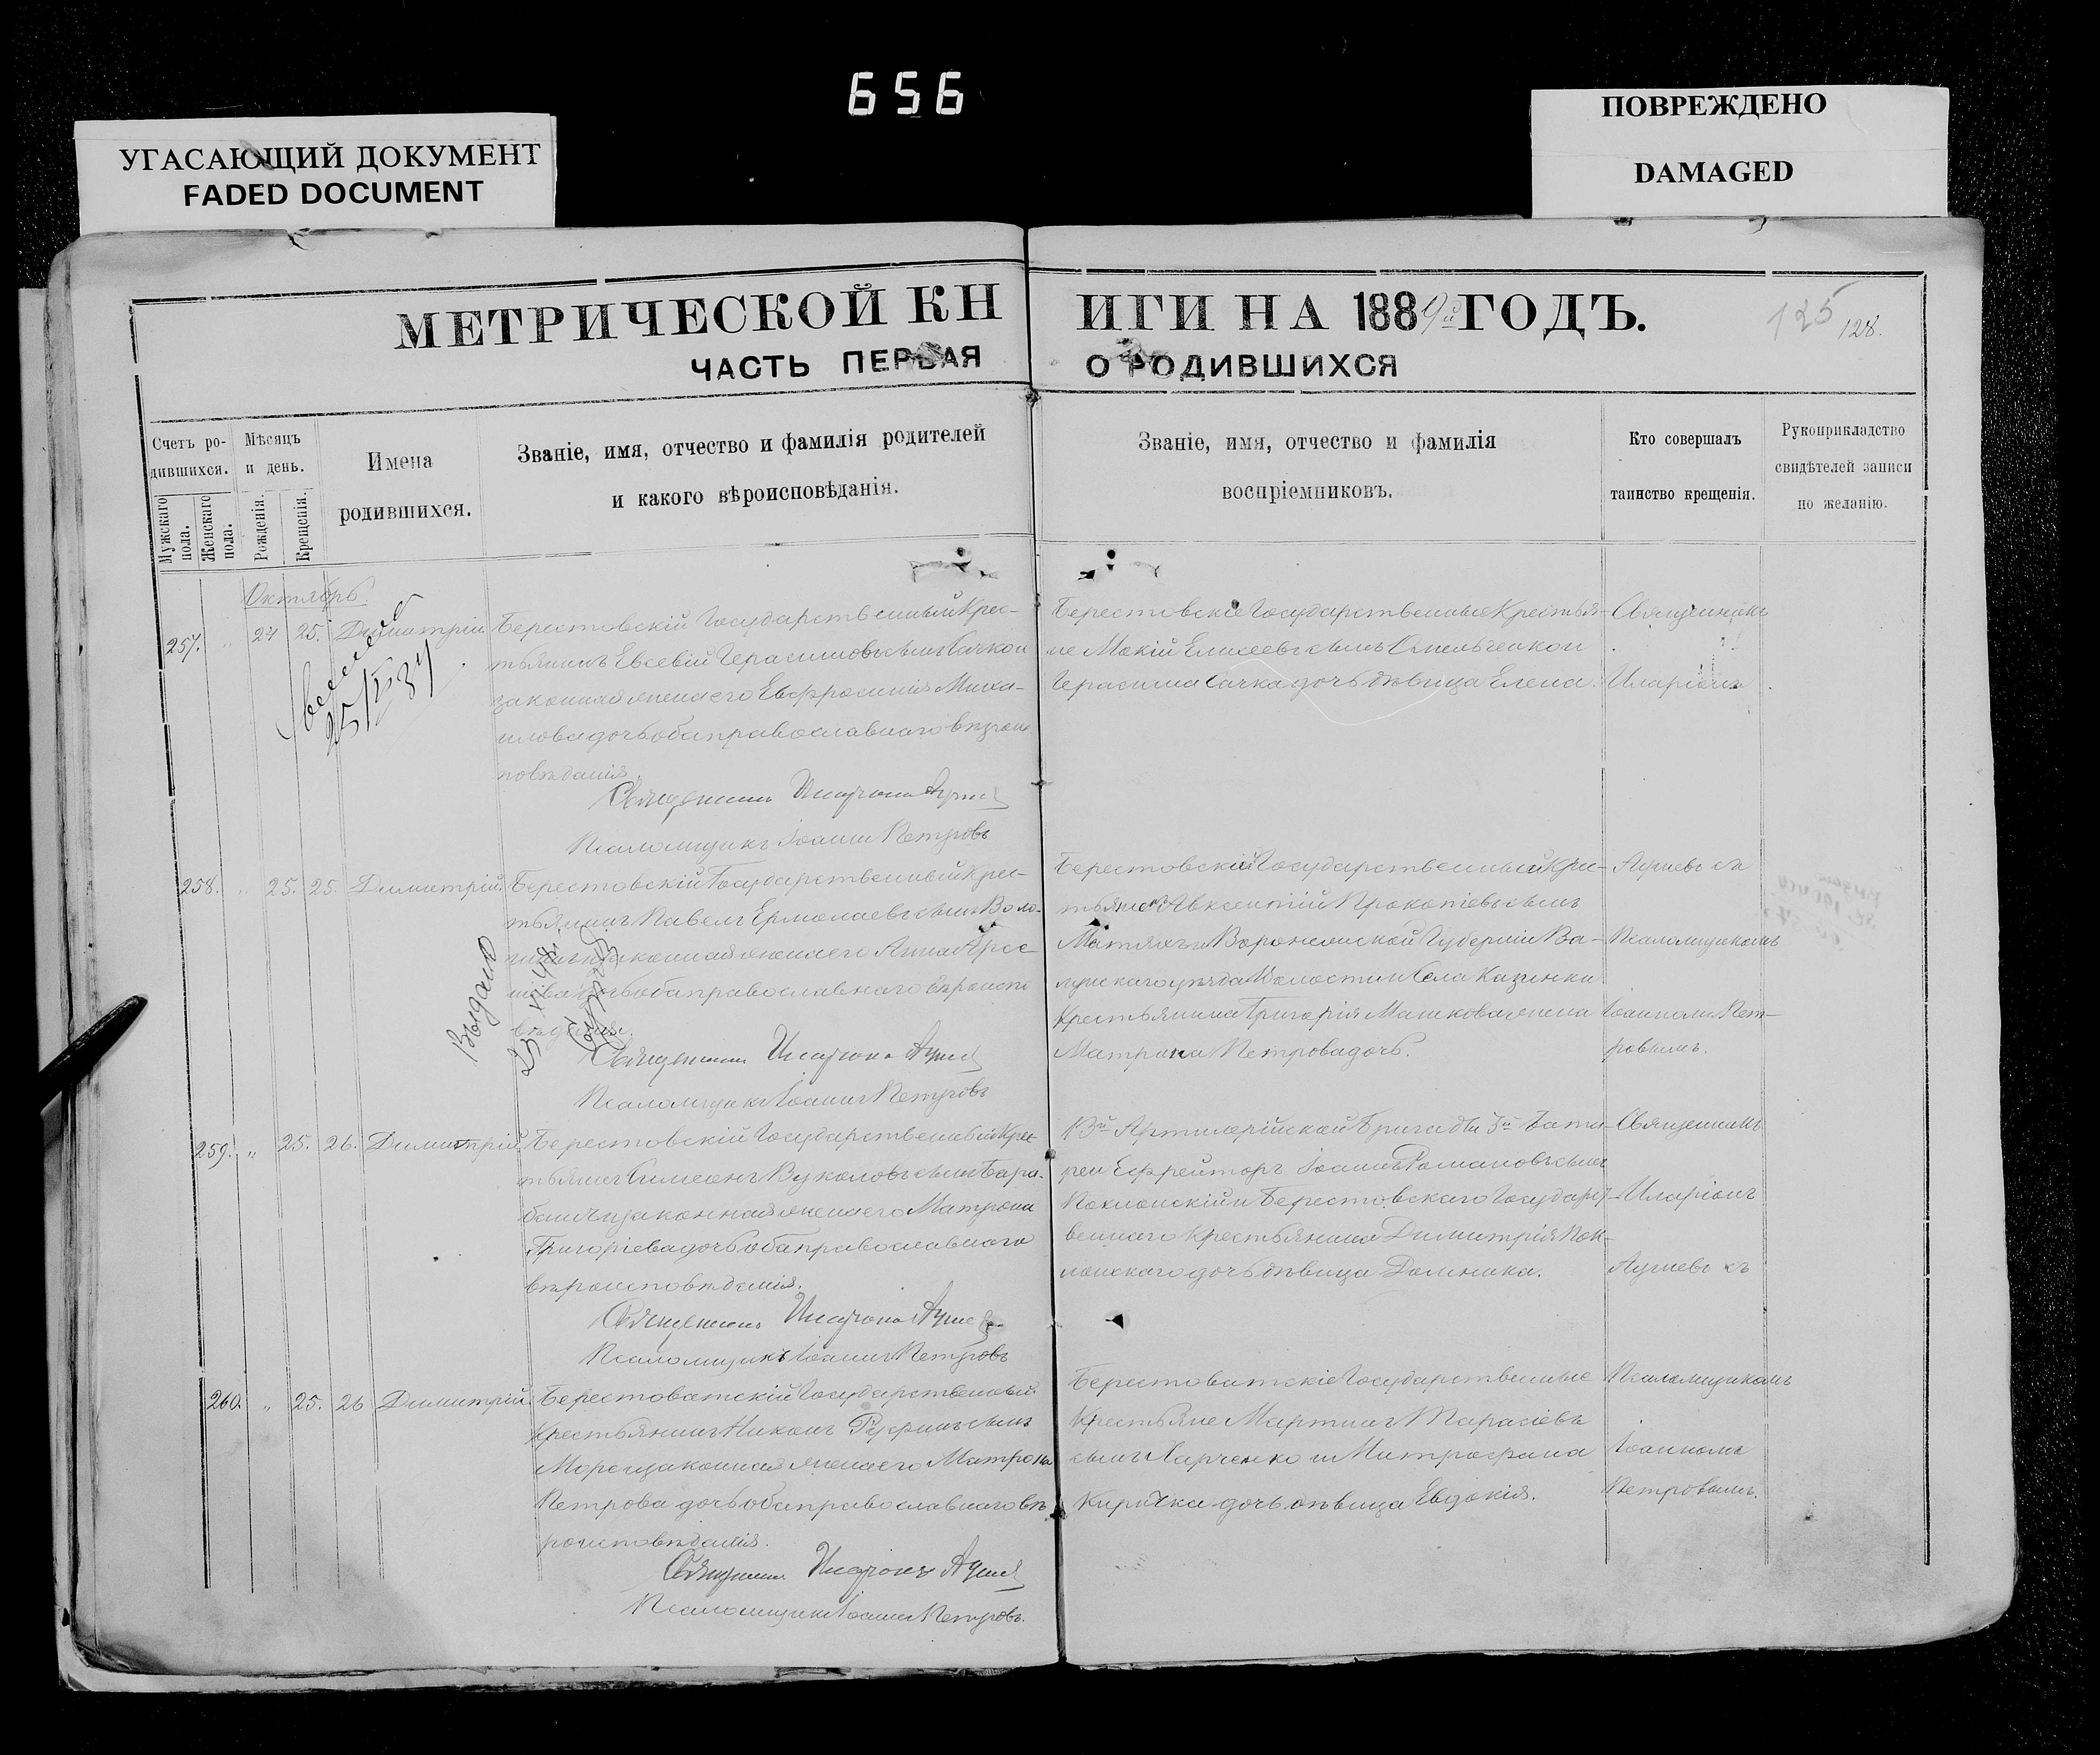 656
УГАСАЮЩИЙ ДОКУМЕНТ
FADED DOCUMENT
ПОВРЕЖДЕНО
DAMAGED
МЕТРИЧЕСКОЙ КНИГИ НА 1884й ГОДЪ.
ЧАСТЬ ПЕРВАЯ О РОДИВШИХСЯ
125
128.
Счетъ ро-
дившихся.
Мужскаго пола.
Женскаго пола.
Мѣсяцъ
и день.
Рожденія.
Крещенія.
Имена
родившихся.
Званіе, имя, отчество и фамилія родителей
и какого вѣроисповѣданія.
Званіе, имя, отчество и фамилія
воспріемниковъ.
Кто совершалъ
таинство крещенія.
Рукоприкладство
свидѣтелей записи
по желанію.
Октябрь.
257. " 24 25. Димитрій
Берестовскій Государственный Крес-
тьянинъ Евсевій Герасимовъ сынъ Сачко и
законная жена его Евфросинія Миха-
илова дочь оба православнаго вѣроис
повѣданія.
Священникъ Иларіонъ
Псаломщикъ Іоаннъ Петровъ
Берестовскіе Государственные Крестья-
не Мокій Елисеевъ сынъ и
Герасима Сачка дочь дѣвица Елена.
Священникъ
Иларіонъ
258. " 25. 25. Димитрій.
Берестовскій Государственный Крес-
тьянинъ Павелъ Ермолаевъ сынъ Воло-
законная жена его Анна
дочь оба православнаго вѣроиспо
вѣданія.
Священникъ Иларіонъ
Псаломщикъ Іоаннъ Петровъ
Выдано
Берестовскій Государственный Крес-
тьянинъ Авксентій Прокопіевъ сынъ
Матяхъ и Воронежской Губерніи Ва-
луйскаго уѣзда Волости и Села Казинки
Крестьянина Григорія Машкова жена
Матрона Петрова дочь.
съ
Псаломщикомъ
Іоанномъ Пет-
ровымъ.
259. " 25. 26. Димитрій
Берестовскій Государственный Крес
тьянинъ Симеонъ Вуколовъ сынъ Бара-
башъ и законная жена его Матрона
Григоріева дочь оба православнаго
вѣроисповѣданія.
Священникъ Иларіонъ
Псаломщикъ Іоаннъ Петровъ
13й Артилерійской Бригады 3й Бата-
реи Ефрейторъ Іоаннъ Романовъ сынъ
Поклонскій и Берестовскаго Государст-
веннаго Крестьянина Димитрія Пок-
лонскаго дочь дѣвица Домника.
Священникъ
Иларіонъ
съ
260. " 25. 26 Димитрій.
Берестоватскій Государственный
Крестьянинъ Никонъ Руфинъ сынъ
законная жена его Матрона
Петрова дочь оба православнаго вѣ
роисповѣданія.
Священникъ Иларіонъ
Псаломщикъ Іоаннъ Петровъ.
Берестоватскіе Государственные
Крестьяне Мартинъ Тарасіевъ
сынъ Харченко и Митрофана
Киричка дочь дѣвица Евдокія.
Псаломщикомъ
Іоанномъ
Петровымъ.